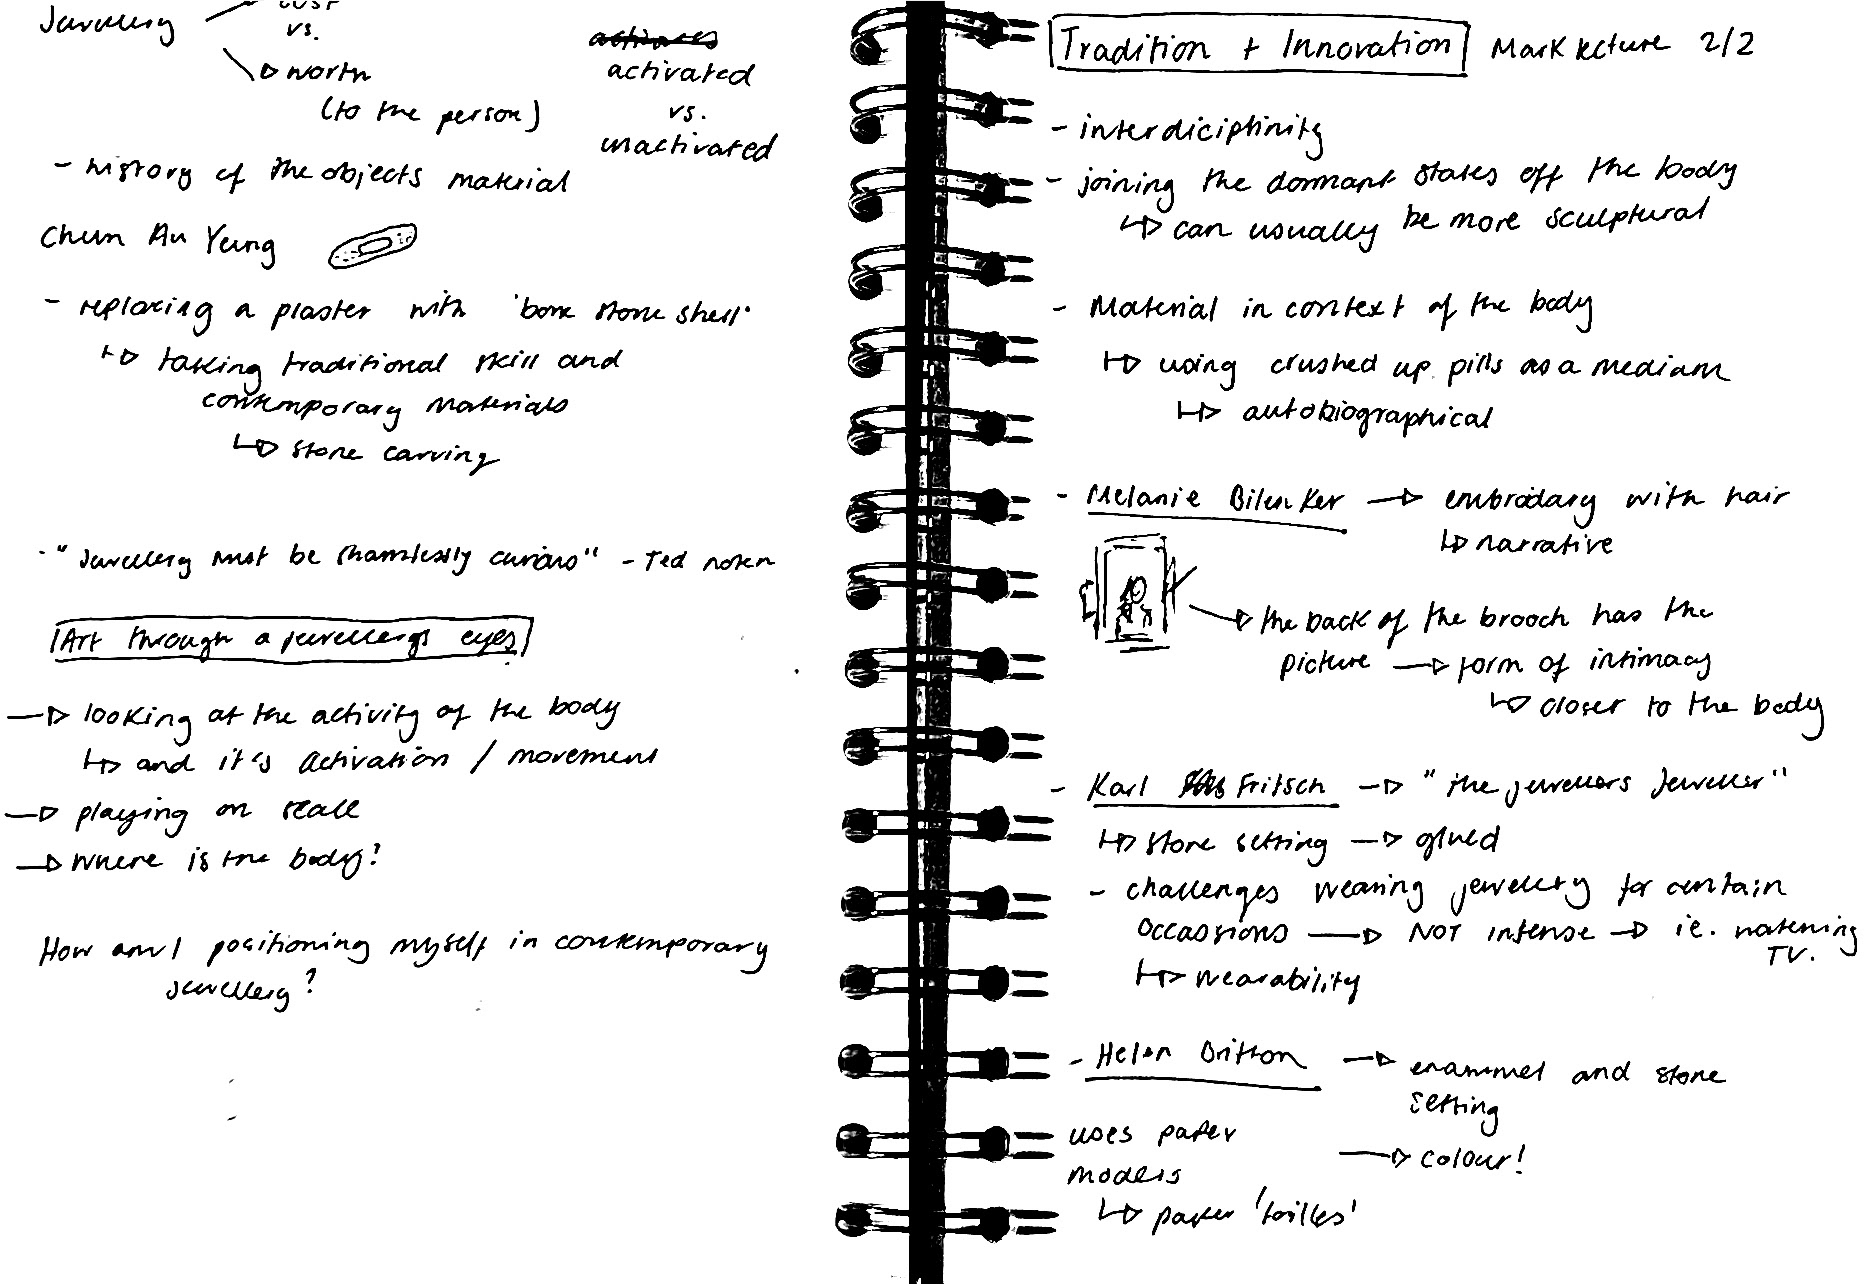 Jewellery
cost
vs.
worth
(to the person)
activated
vs.
unactivated
- history of the objects material
Chun Au Yeung
- replacing a plaster with 'bone stone shell'
taking traditional skill and
contemporary materials
stone carving
- "Jewellery must be shamlessly curious" - Ted noten
Art through a jewellerys eyes
looking at the activity of the body
and it's activation / movement
playing on scale
Where is the body?
How am I positioning myself in contemporary
jewellery?
Tradition + Innovation Mark lecture 2/2
- interdiciplinity
- joining the dormant states off the body
can usually be more sculptural
- Material in context of the body
using crushed up pills as a medium
autobiographical
- Melanie Bilenker embrodary with hair
narrative
the back of the brooch has the
picture form of intimacy
closer to the body
- Karl Fritsch "the jewellers Jeweller"
stone setting glued
- challenges wearing jewellery for certain
occassions NOT intense ie. watching
TV.
wearability
- Helen Britton enammel and stone
setting
uses paper
models colour!
paper